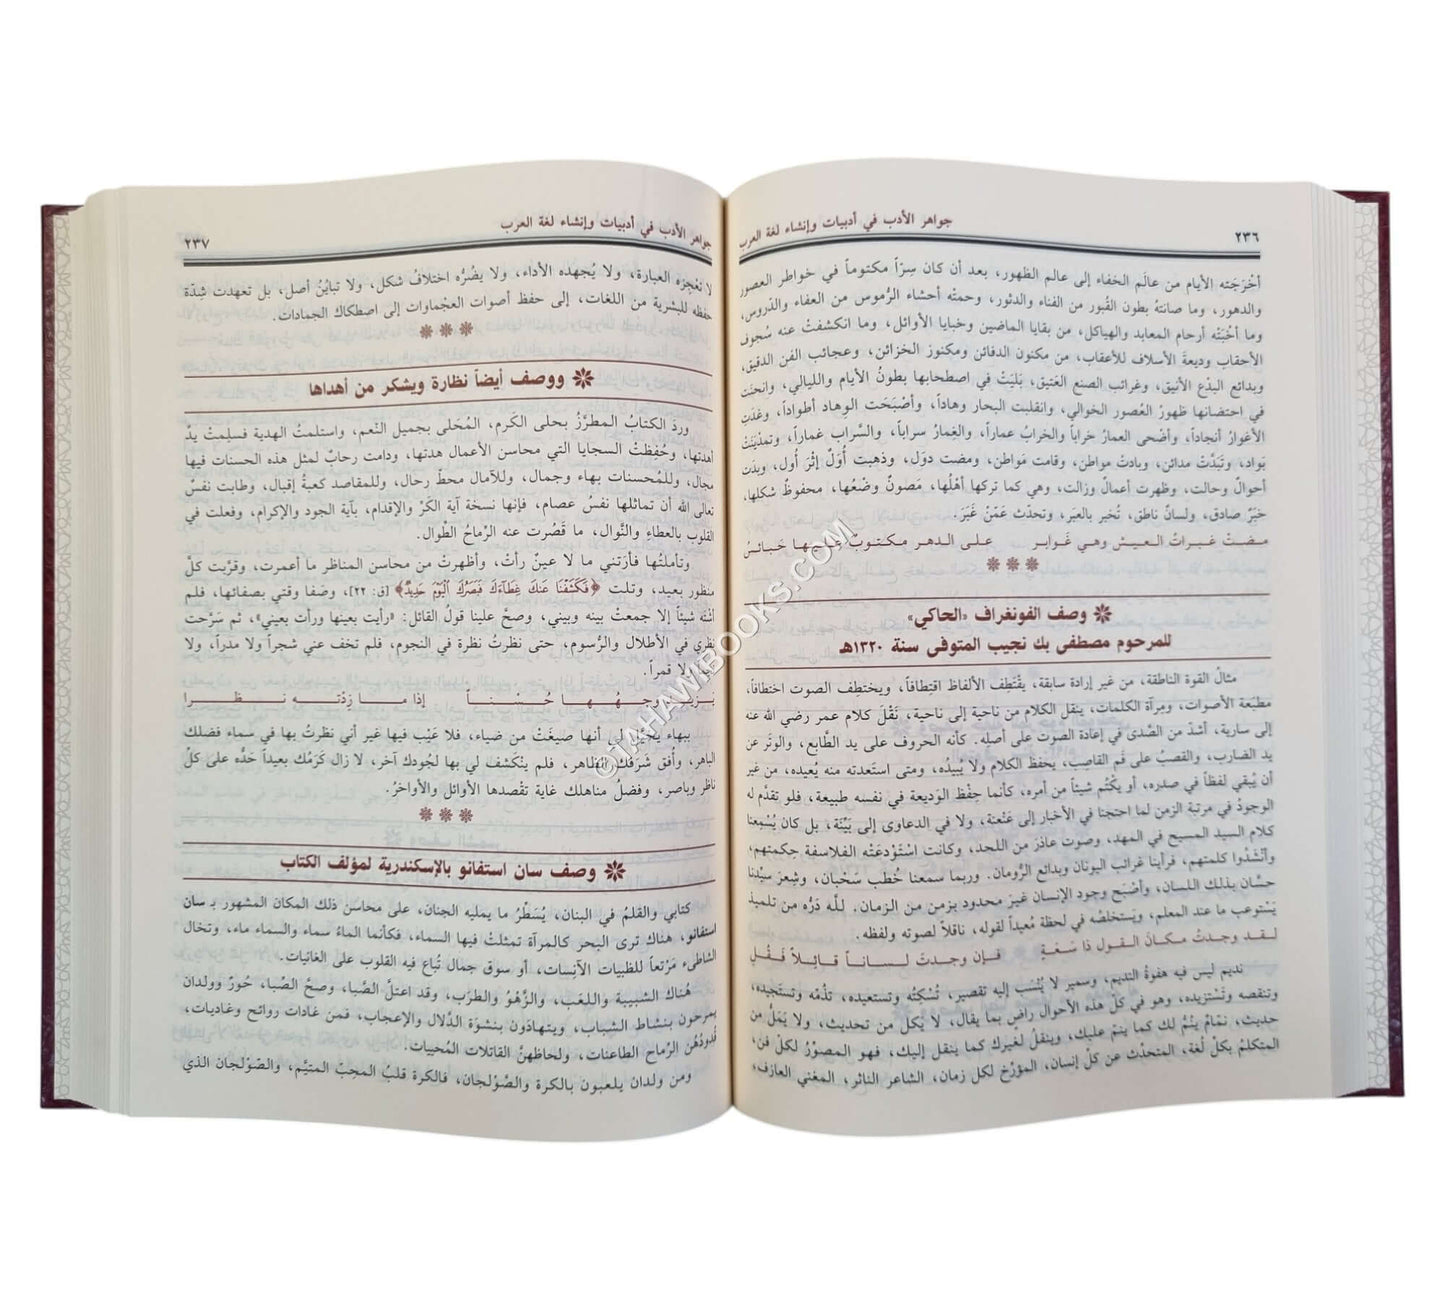 ٢٣٦
جواهر الأدب في أدبيات وإنشاء لغة العرب
أخْرَجَته الأيام من عالَم الخفاء إلى عالم الظهور، بعد أن كان سِرّاً مكتوماً في خواطر العصور
والدهور، وما صانتهُ بطون القُبور من الفناء والدثور، وحمتْه أحشاء الرُّموس من العفاء والدّروس،
وما أخْبَتْه أرحام المعابد والهياكل، من بقايا الماضين وخبايا الأوائل، وما انكشفتْ عنه سُجوف
الأحقاب وديعةَ الأسلاف للأعقاب، من مكنون الدفائن ومكنوز الخزائن، وعجائب الفن الدقيق،
وبدائع البدْع الأنيق، وغرائب الصنع العَتيق، بَليَتْ في اصطحابها بطونُ الأيام والليالي، وانحنَت
في احتضانها ظهورُ العُصور الخوالي، وانقلبت البحار وهاداً، وأصْبَحَت الوِهاد أطواداً، وغدَت
الأغوارُ أنجاداً، وأضْحى العمارُ خراباً والخرابُ عماراً، والغِمارُ سراباً، والسَّراب غماراً، وتمدْيَنَتْ
بَواد، وتَبَدَّتْ مدائن، وبادتْ مواطن، وقامت مَواطن، ومضت دوَل، وذهبت أُوَلٌ إثْرَ أُول، وبدَت
أحوالٌ وحالت، وظهرت أعمالٌ وزالت، وهي كما تركها أهْلُها، مَصونٌ وضْعُها، محفوظٌ شكلها،
خبَرٌ صادق، ولسانٌ ناطق، تُخبر بالعبَر، وتحدّث عَمّنْ غَبَرَ.
مضتْ غبراتُ العيش وهي غَوابر على الدهر مكتوبٌ عليها حَبائسُ
وصف الفونغراف «الحاكي»
للمرحوم مصطفى بك نجيب المتوفى سنة ١٣٢٠هـ
مثالُ القوة الناطقة، من غير إرادة سابقة، يقْتَطِف الألفاظ اقتِطافاً، ويختطِف الصوت اختطافاً،
مطبَعة الأصوات، ومِرآة الكلمات، ينقل الكلام من ناحية إلى ناحية، نَقْلَ كلام عمر رضي الله عنه
إلى سارية، أشدّ من الصَّدى في إعادة الصوت على أصلِه. كأنه الحروف على يد الطَّابع، والوتَر عن
يد الضارب، والقصبُ على فَم القاصِب، يحفظ الكلام ولا يُبيدُه، ومتى استَعدته منه يُعيده، من غير
أن يُبقي لفظاً في صدره، أو يكْتُم شيئاً من أمره، كأنما حِفْظ الوَديعة في نفسه طبيعة، فلو تقدَّم له
الوجودُ في مرتبة الزمن لما احتجنا في الأخبار إلى عَنْعنة، ولا في الدعاوى إلى بَيّنَة، بل كان يُسْمِعنا
كلام السيد المسيح في المهد، وصوت عاذَر من اللحد، وكانت اسْتَوْدعَتْه الفلاسفة حِكمتهم،
وأنْشَدُوا كلمتهم، فرأينا غرائب اليونان وبدائع الرُّومان. وربما سمعنا خُطب سَحْبان، وشِعرَ سيّدنا
حسَّان بذلك اللسان، وأصْبَح وجود الإنسان غيرَ محدود بزمن من الزمان. للَّه دَرُّه من تلميذ
يَسْتوعب ما عند المعلم، ويَستخلصُه في لحظة مُعيداً لقوله، ناقلاً لصوته ولفظه.
لقد وجدتُ مكانَ القول ذا سَعَةٍ فإن وجدتَ لساناً قائلاً فقُل
نديم ليس فيه هفوةُ النديم، وسمير لا يُنْسَب إليه تقصير، تُسْكِتُه وتستعيده، تذُمّه وتستَجيده،
وتنقصه وتَسْتزيده، وهو في كلّ هذه الأحوال راضٍ بما يقال، لا يَكل من تحديث، ولا يَمَلُّ من
حديث، نمّامٌ يَنُمُّ لك كما ينمّ عليك، وينقلُ لغيرك كما ينقل إليك، فهو المصوّرُ لكلّ فن،
المتكلمُ بكلّ لغة، المتحدّث عن كلّ إنسان، المؤرّخ لكل زمان، الشاعر الناثر، المغني العازف،
٢٣٧
جواهر الأدب في أدبيات وإنشاء لغة العرب
لا تعْجزه العبارة، ولا يُجهده الأداء، ولا يضُرُّه اختلافُ شكل، ولا تبايُن أصل، بل تعهدت شِدّة
حفظه للبشرية من اللغات، إلى حفظ أصوات العجْماوات إلى اصطكاك الجمادات.
ووصف أيضاً نظارة ويشكر من أهداها
وردَ الكتابُ المطرَّزُ بحلى الكَرم، المُحَلى بجميل النّعم، واستلمتُ الهدية فسلِمتْ يدٌ
أهدتها، وحُفظتْ السجايا التي محاسن الأعمال هدتها، ودامت رحابٌ لمثل هذه الحسنات فيها
مجال، وللمُحسنات بهاء وجمال، وللآمال محطّ رحال، وللمقاصد كعبةُ إقبال، وطابت نفسٌ
تعالى الله أن تماثلها نفسُ عصام، فإنها نسخة آية الكَرّ والإقدام، بآية الجود والإكرام، وفعلت في
القلوب بالعطاءِ والنَّوال، ما قَصُرت عنه الرّماحُ الطّوال.
وتأملتُها فأرَتني ما لا عينٌ رأتْ، وأظهرتْ من محاسن المناظر ما أعمرت، وقرَّبت كلَّ
منظور بعيد، وتلت ﴿فَكَشَفْنَا عَنكَ غِطَاءَكَ فَبَصَرُكَ الْيَوْمَ حَدِيدٌ﴾ [ق: ٢٢]، وصَفا وقتي بصفائها، فلم
أشْهَ شيئاً إلا جمعتْ بينه وبيني، وصحَّ علينا قولُ القائل: «رأيت بعينها ورأت بعيني»، ثم سَرَّحت
نظري في الأطلال والرُّسوم، حتى نظرتُ نظرة في النجوم، فلم تخف عني شجراً ولا مدراً، ولا
ولا قمراً.
يَزيدك وجهُها حُسناً إذا ما زِدْتَه نظرا
ببهاء يُخيّل لي أنها صيغَتْ من ضياء، فلا عَيْب فيها غير أني نظرتُ بها في سماء فضلك
الباهر، وأفق شَرَفك الظاهر، فلم يتْكشف لي بها لجُودك آخر، لا زال كرَمُك بعيداً حَدُّه على كلّ
ناظر وباصر، وفضلُ مناهلك غاية تقْصدها الأوائل والأواخرُ.
وصف سان استفانو بالإسكندرية لمؤلف الكتاب
كتابي والقلمُ في البنان، يُسَطِّرُ ما يمليه الجنان، على محاسن ذلك المكان المشهور بـ سان
استفانو، هناك ترى البحر كالمرآة تمثلتْ فيها السماء، فكأنما الماءُ سماء والسماء ماء، وتخال
الشاطىء مَرْتعاً للظبيات الآنِسات، أو سوق جمال تُباع فيه القلوب على الغانيات.
هُناك الشبيبة واللِعَب، والزَّهْوُ والطرَب، وقد اعتلَّ الصَّبا، وصحَّ الصِّبا، حُورٌ وولدان
يمرحون بنشاط الشباب، ويتهادَون بنشْوَة الدَّلال والإعجاب، فمن غادات روائح وغاديات،
قُدودُهُن الرّماح الطاعنات، ولحاظهنَّ القاتلات المُحييات.
ومن ولدان يلعبون بالكرة والصَّوْلجان، فالكرة قلبُ المحبّ المتيَّم، والصَّوْلجان الذي
©TAHAWIBOOKS.COM